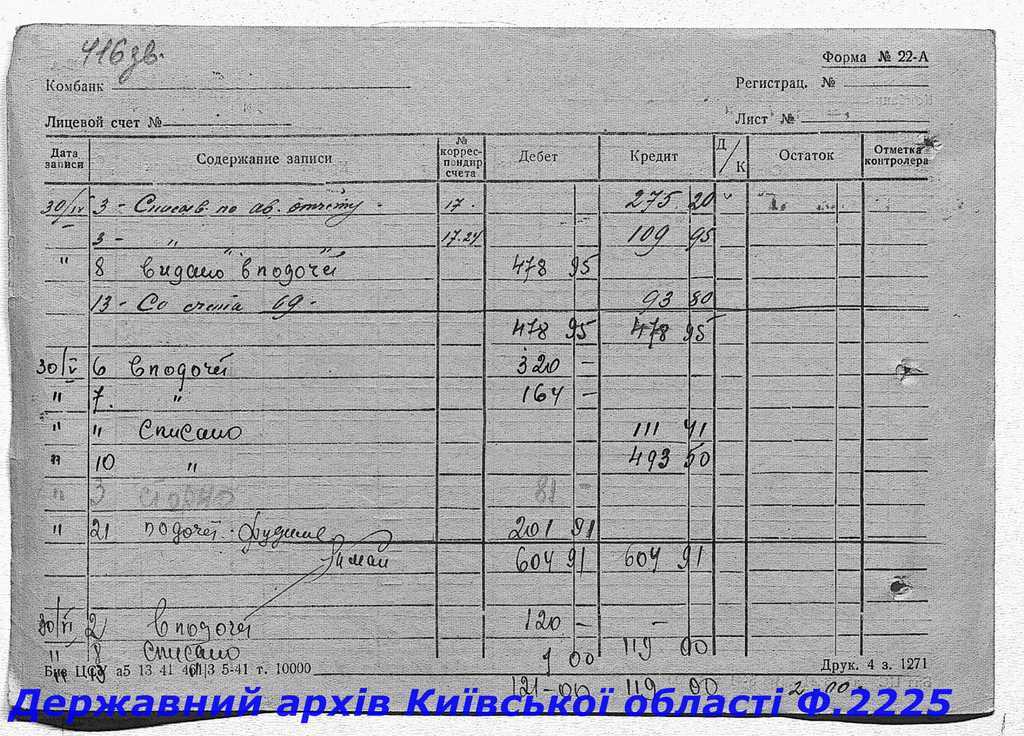 416 зв.
Форма № 22-А
Комбанк
Регистрац. №
Лицевой счет №
Лист №
Дата записи Содержание записи № коррес- пондир счета Дебет Кредит Д/К Остаток Отметка контролера
30/IV 3 - по ав. отчету - 17. 275 20
3 - " 17.24 109 95
" 8 видано в подочет 478 95
13 - Со счета 69 - 93 80
478 95 478 95
30/V 6 в подочет 320 -
" 7. " 164 -
" " списано 111 41
" 10 " 493 50
" 3 сторно 81 -
" 21 подочет 201 91
604 91 604 91
30/VI 2 в подочет 120 - -
" 8 списано 1 00 119 00
Друк. 4 з. 1271
а5 13 41 5-41 т. 10000
121-00 119 00
Державний архів Київської області Ф.2225